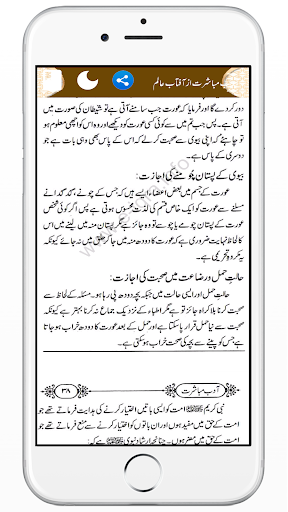 مباشرت از آفتاب عالم
دور کر دے گا اور فرمایا کہ عورت جب سامنے آتی ہے تو شیطان کی صورت میں
آتی ہے۔ پس جب تم میں سے کوئی کسی عورت کو دیکھے اور وہ اس کو اچھی معلوم ہو
تو چاہئے کہ اپنی بیوی سے صحبت کرلے کہ اس کے پاس بھی وہی بات ہے جو
دوسری کے پاس ہے۔
بیوی کے پستان چومنے کی اجازت:
عورت کے جسم میں بعض اعضاء ایسے ہیں کہ جس کے چومنے، گدگدانے
مسلنے سے عورت کو ایک خاص قسم کی لذت محسوس ہوتی ہے پس اگر کوئی شخص
عورت کے پستان چومے یا چوسے تو وہ جائز ہے مگر پستان منہ میں لینے میں اس
کا لحاظ نہایت ضروری ہے کہ عورت کا دودھ منہ میں جا کر حلق میں نہ جائے کیونکہ
یہ مکروہ تحریمی ہے۔
حالت حمل و رضاعت میں صحبت کی اجازت:
حالت حمل اور ایسی حالت میں جبکہ بچہ دودھ پی رہا ہو۔ مسئلہ کے لحاظ سے
صحبت کرنا بلا کراہ جائز تو ہے مگر اطباء کے نزدیک جماع نہ کرنا بہتر ہے کیونکہ
صحبت سے نیا حمل قرار پا سکتا ہے اور حمل کے بعد عورت کا دودھ خراب ہو جاتا
ہے جس کو پینے سے بچہ کی صحت خراب ہو سکتی ہے۔
آداب مباشرت
۳۸
نبی کریم ﷺ امت کو ایسی باتیں اختیار کرنے کی ہدایت فرماتے تھے جو
امت کے حق میں مفید ہوں اور ان باتوں کو اختیار کرنے سے منع فرماتے تھے جو
امت کے حق میں مضر ہوں۔ چنانچہ ارشاد نبوی ﷺ ہے کہ: